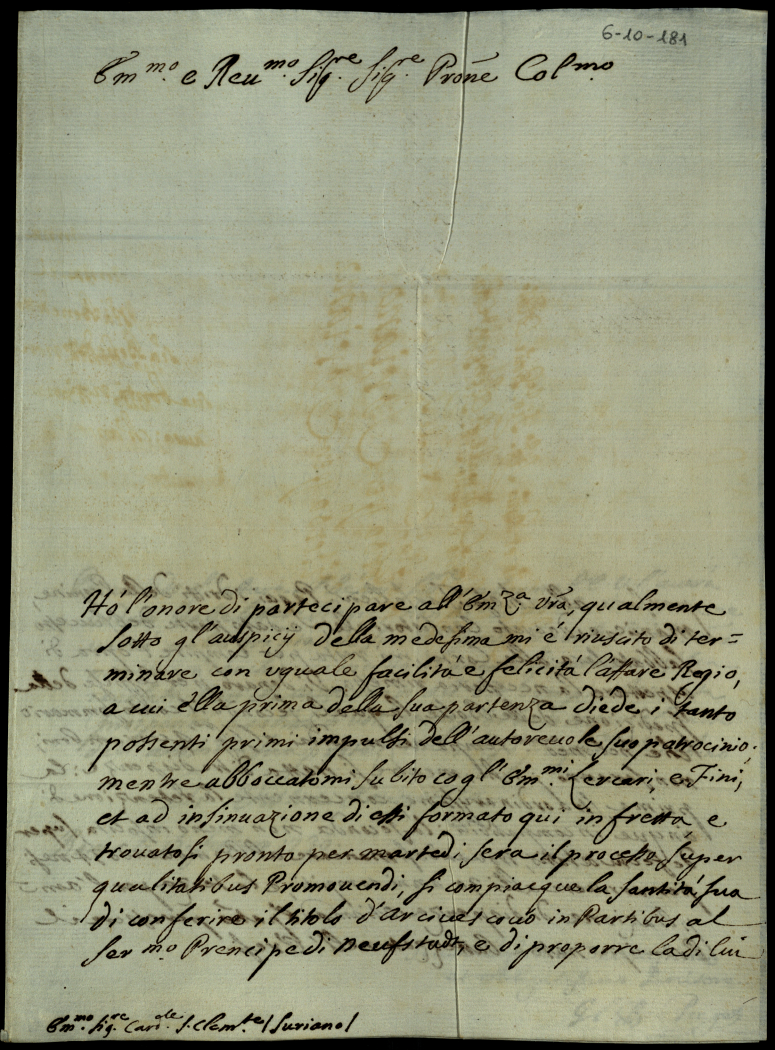 6-10-181
Em.mo e Reu.mo Sig.re Sig.re Prone Col.mo
Hó l'onore di partecipare all'Em.za Vra, qualmente
sotto gl'auspicij della medesima mi é riuscito di ter=
minare con uguale facilitá e felicitá l'affare Regio,
a cui ella prima della sua partenza diéde i tanto
possenti primi impulsi dell'autoreuole suo patrocinio;
mentre abboccatomi subito cogl'Em.mi Lercari, e Fini,
et ad insinuazione di essi formato qui in fretta, e
trouatosi pronto per martedi sera il processo super
qualitatibus Promouendi, si compiacque la Santitá sua
di conferire il titolo d'Arciuescouo in Partibus al
Ser.mo Prencipe di Neufstadt, e di proporre la di lui
Em.mo Sig.re Card.le S. Clem.te / Suriano /